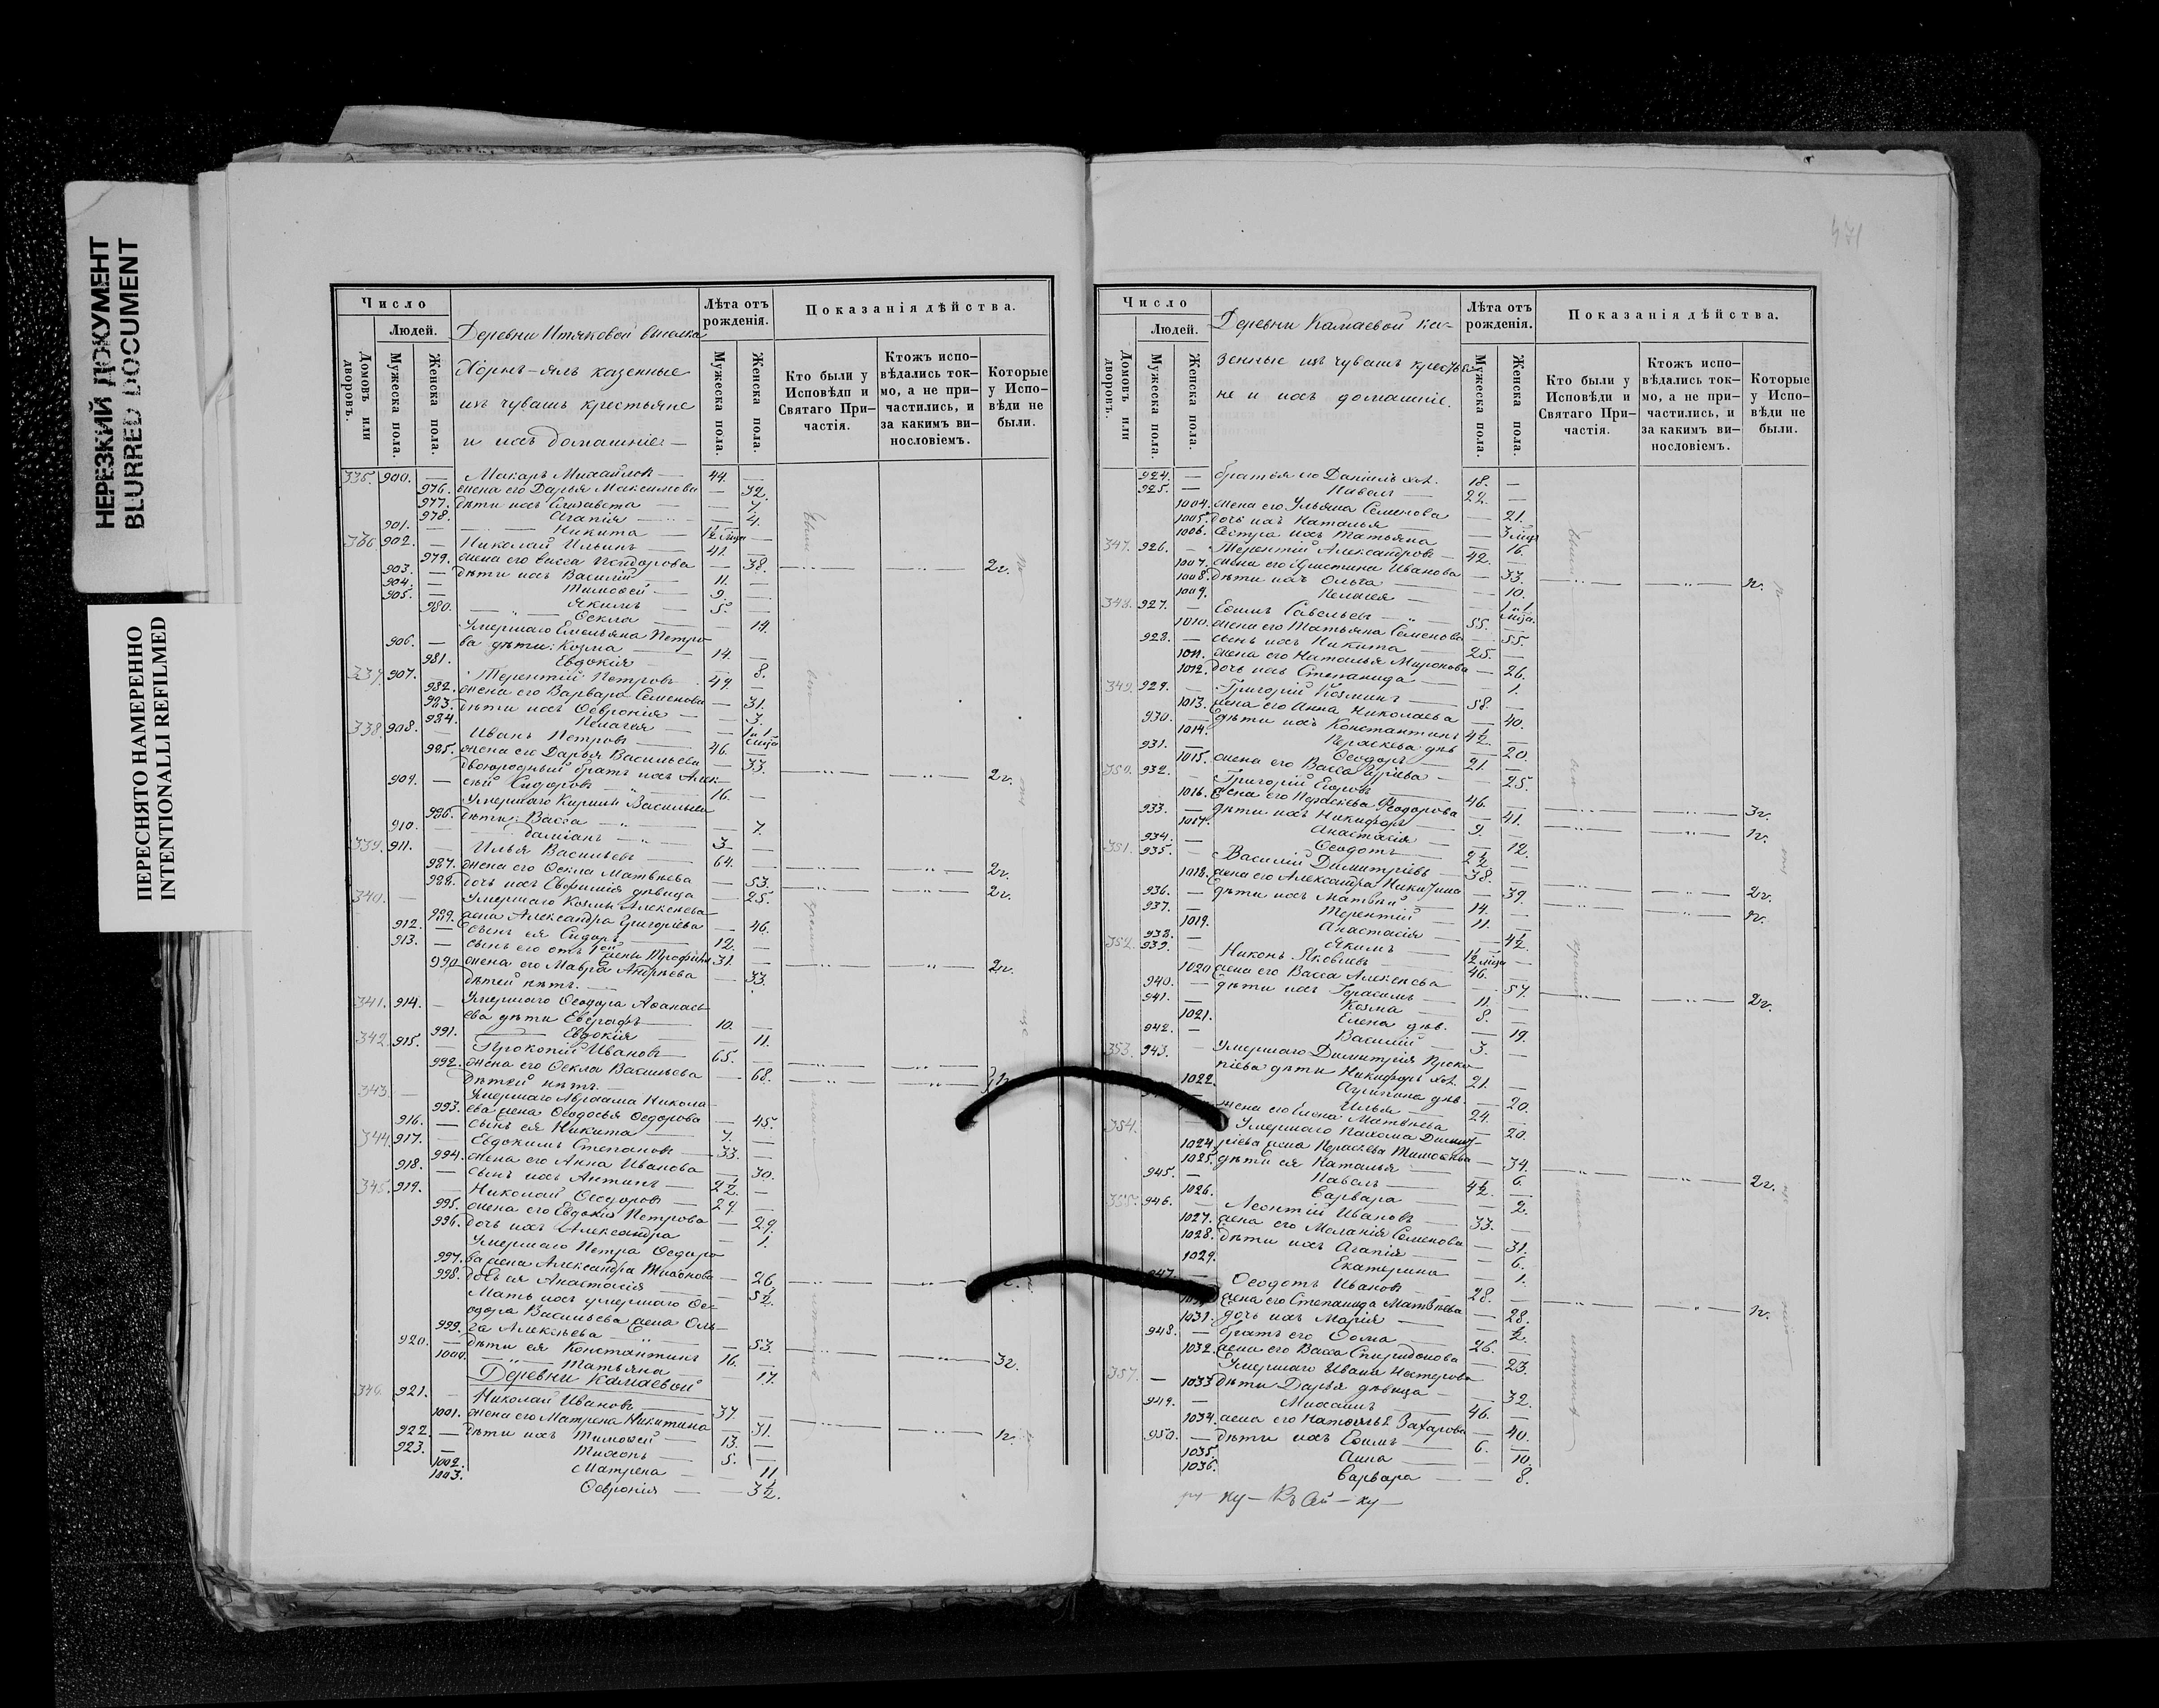 НЕРЕЗКИЙ ДОКУМЕНТ
BLURRED DOCUMENT
ПЕРЕСНЯТО НАМЕРЕННО
INTENTIONALLI REFILMED
Число
Людей.
Домовъ или дворовъ.
Мужеска пола.
Женска пола.
Деревни Итяковой выселка
Хорнъ-ялъ казенные
изъ чувашъ крестьяне
и ихъ домашніе —
Лѣта отъ рожденія.
Мужеска пола.
Женска пола.
Показанія дѣйства.
Кто были у Исповѣди и Святаго Причастія.
Ктожъ исповѣдались токмо, а не причастились, и за какимъ винословіемъ.
Которые у Исповѣди не были.
335. 900. — Макаръ Михайловъ — 44. —
976. жена его Дарья Максимова — 32.
977. дѣти ихъ Елизавета — 7.
978. Агапія — 4.
901. — Никита — 1/2 мца —
336. 902. — Николай Ильинъ — 41. —
979. жена его Васса Исидорова — 38. 2г.
903. — дѣти ихъ Василій — 11. —
904. — Тимоѳей — 9. —
905. — Якимъ — 5 —
980. Ѳекла — 14.
Умершаго Емельяна Петро
906. — ва дѣти: Козма — 14. —
981. Евдокія — 8.
337. 907. — Терентій Петровъ 49. —
982. жена его Варвара Семенова — 31.
983. дѣти ихъ Ѳевронія — 3.
984. Пелагея — 1 и 1 мца
338. 908. — Иванъ Петровъ — 46. —
985. жена его Дарья Васильева — 33.
двоюродный братъ ихъ Алек-
909. — сѣй Сидоровъ — 16. — 2г.
Умершаго Кирилы Васильева
986. дѣти: Васса — 7.
910. — Даміанъ — 3 —
339. 911. — Илья Васильевъ — 64. —
987. жена его Ѳекла Матвѣева — 53. 2г.
988. дочь ихъ Евфимія дѣвица — 25. 2г.
340. — Умершаго Козмы Алексѣева
989. жена Александра Григорьева — 46.
912. — сынъ ея Сидоръ — 12. —
913. — сынъ его отъ 1ой жены Трофимъ 31. —
990. жена его Мавра Андреева — 33. 2г.
дѣтей нѣтъ. —
341. 914. — Умершаго Ѳеодора Аѳанась
ева дѣти Евграфъ — 10. —
991. Евдокія — 11.
342. 915. — Прокопій Ивановъ — 65. —
992. жена его Ѳекла Васильева — 68.
дѣтей нѣтъ. —
343. — Умершаго Авраама Никола-
993. ева жена Ѳеодосья Ѳедорова — 45.
916. — сынъ ея Никита — 7. —
344. 917. — Евдокимъ Степановъ — 33. —
994. жена его Анна Иванова — 30.
918. — сынъ ихъ Антипъ — 2 1/2. —
345. 919. — Николай Ѳеодоровъ — 29 —
995. жена его Евдокія Петрова — 29.
996. дочь ихъ Александра — 1.
Умершаго Петра Ѳедоро
997. ва жена Александра Тихонова — 26.
998. дочь ея Анастасія — 5 1/2.
Мать ихъ умершаго Ѳе-
одора Васильева жена Оль-
999. га Алексѣева — 53.
920. — дѣти ея Константинъ 16. — 3г.
1000. Татьяна — 17.
Деревни Камаевой
346. 921. — Николай Ивановъ — 37. —
1001. жена его Матрена Никитина — 31.
922. — дѣти ихъ Тимоѳей — 13. — 1г.
923. — Тихонъ — 5. —
1002. Матрена — 11.
1003. Ѳевронія — 3 1/2.
471
Число
Людей.
Домовъ или дворовъ.
Мужеска пола.
Женска пола.
Деревни Камаевой ка-
зенные изъ чувашъ крестья-
не и ихъ домашніе.
Лѣта отъ рожденія.
Мужеска пола.
Женска пола.
Показанія дѣйства.
Кто были у Исповѣди и Святаго Причастія.
Ктожъ исповѣдались токмо, а не причастились, и за какимъ винословіемъ.
Которые у Исповѣди не были.
924. — братья его Даніилъ хол. 18. —
925. — Павелъ — 22. —
1004. жена его Ульяна Семенова — 21.
1005. дочь ихъ Наталья — 3 мца
1006. сестра ихъ Татьяна — 16.
347. 926. — Терентій Александровъ — 42. —
1007. жена его Христина Иванова — 33.
1008. дѣти ихъ Ольга — 10. 1г.
1009. Пелагея — 1 и 1 мца.
348. 927. — Ефимъ Савельевъ — 55. —
1010. жена его Татьяна Семенова — 55.
928. — сынъ ихъ Никита — 25. —
1011. жена его Наталья Миронова — 26.
1012. дочь ихъ Степанида — 1.
349. 929. — Григорій Козминъ — 58. —
1013. жена его Анна Николаева — 40.
930. — дѣти ихъ Константинъ 4 1/2. —
1014. Параскева дѣв — 20.
931. — Ѳеодоръ — 21. —
1015. жена его Васса Гурьева — 25.
350. 932. — Григорій Егоровъ — 46. —
1016. жена его Параскева Ѳеодорова — 41. 3г.
933. — дѣти ихъ Никифоръ — 9. — 1г.
1017. Анастасія — 12.
934. — Ѳеодотъ — 2 1/2 —
351. 935. — Василій Димитріевъ — 38. —
1018. жена его Александра Никитина — 39. 2г.
936. — дѣти ихъ Матвѣй — 14. — 1г.
937. — Терентій — 11. —
1019. Анастасія — 4 1/2.
938. — Якимъ — 1/2 мца —
352. 939. — Никонъ Яковлевъ — 46. —
1020. жена его Васса Алексѣева — 37.
940. — дѣти ихъ Герасимъ — 11. — 2г.
941. — Козма — 8. —
1021. Елена дѣв. — 19.
942. — Василій — 3. —
353. 943. — Умершаго Димитрія Проко
піева дѣти Никифоръ хол. 21. —
1022. Агрипина дѣв. — 20.
Илья — 24. —
жена его Елена Матвѣева — 20.
354. Умершаго Пахома Димит-
1024. ріева жена Параскева Тимоѳеева — 34.
1025. дѣти ея Наталья — 6.
945. — Павелъ — 4 1/2. — 2г.
1026. Варвара — 2.
355. 946. — Леонтій Ивановъ — 33. —
1027. жена его Меланія Семенова — 31.
1028. дѣти ихъ Агапія — 6.
1029. Екатерина — 1.
947. — Ѳеодотъ Ивановъ — 28. —
жена его Степанида Матвѣева — 28. 1г.
1031. дочь ихъ Марія — 1/2.
948. — братъ его Ѳома — 26. —
1032. жена его Васса Спиридонова — 23.
357. — Умершаго Ивана Нестерова
1033 дѣти Дарья дѣвица — 32.
949. — Михаилъ — 46. —
1034. жена его Наталья Захарова — 40.
950. — дѣти ихъ Ефимъ — 6. —
1035. Анна — 10.
1036. Варвара — 8.